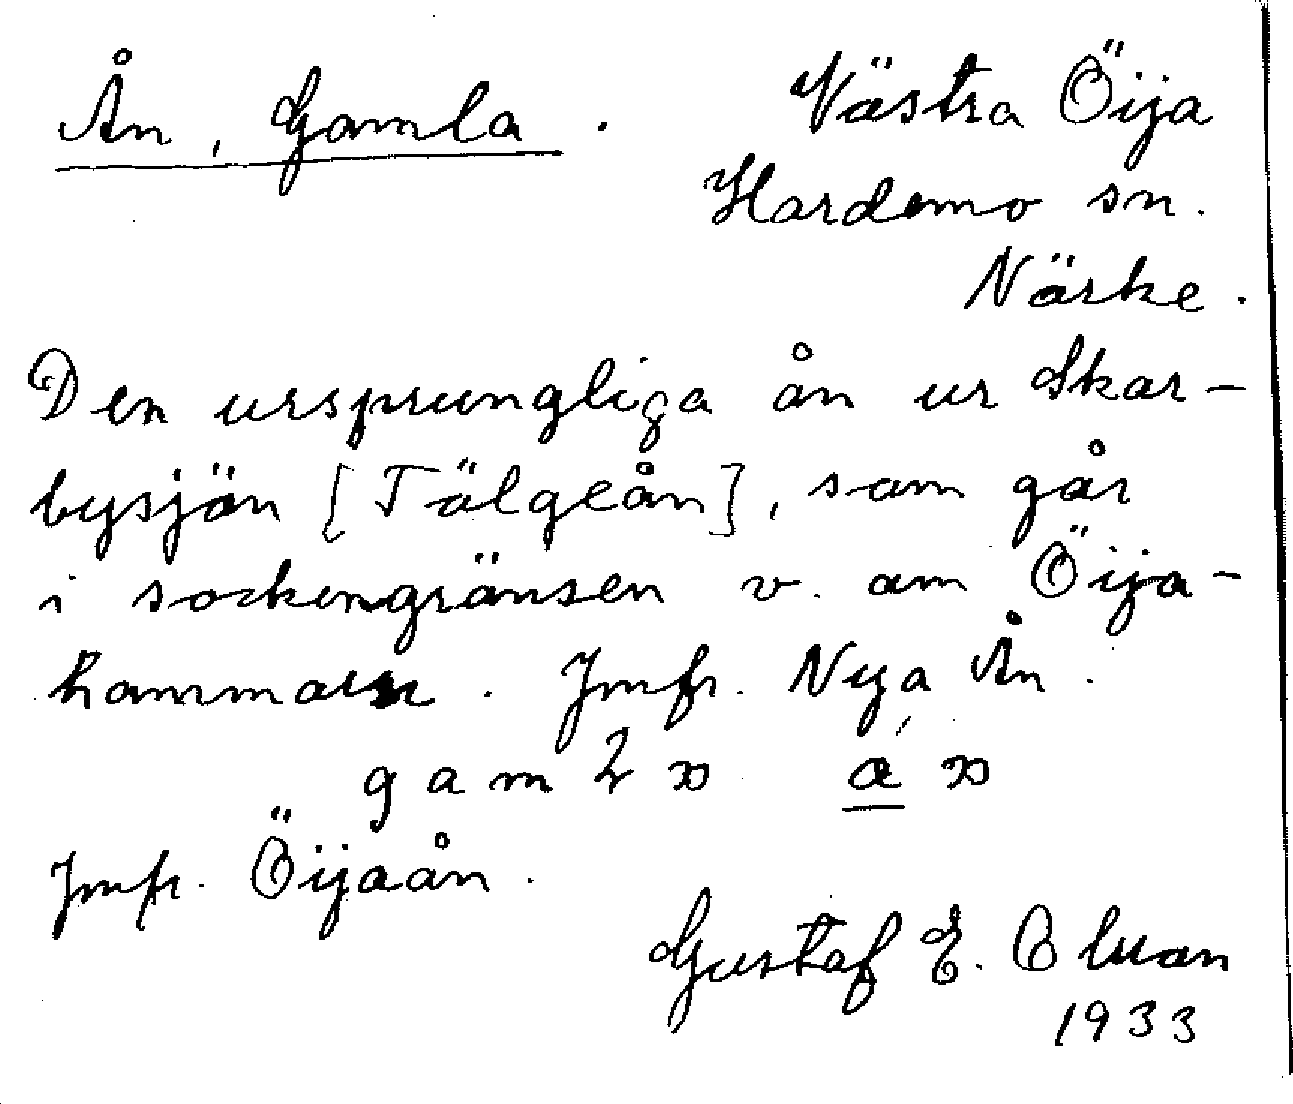 Ån, Gamla. Västra Öija
Hardemo sn.
Närke.
Den ursprungliga ån ur Skar-
bysjön [Tälgeån], som går
i sockengränsen v. om Öija-
hammarn. Jmfr. Nya Ån.
Jmfr. Öijaån.
Gustaf E.
1933